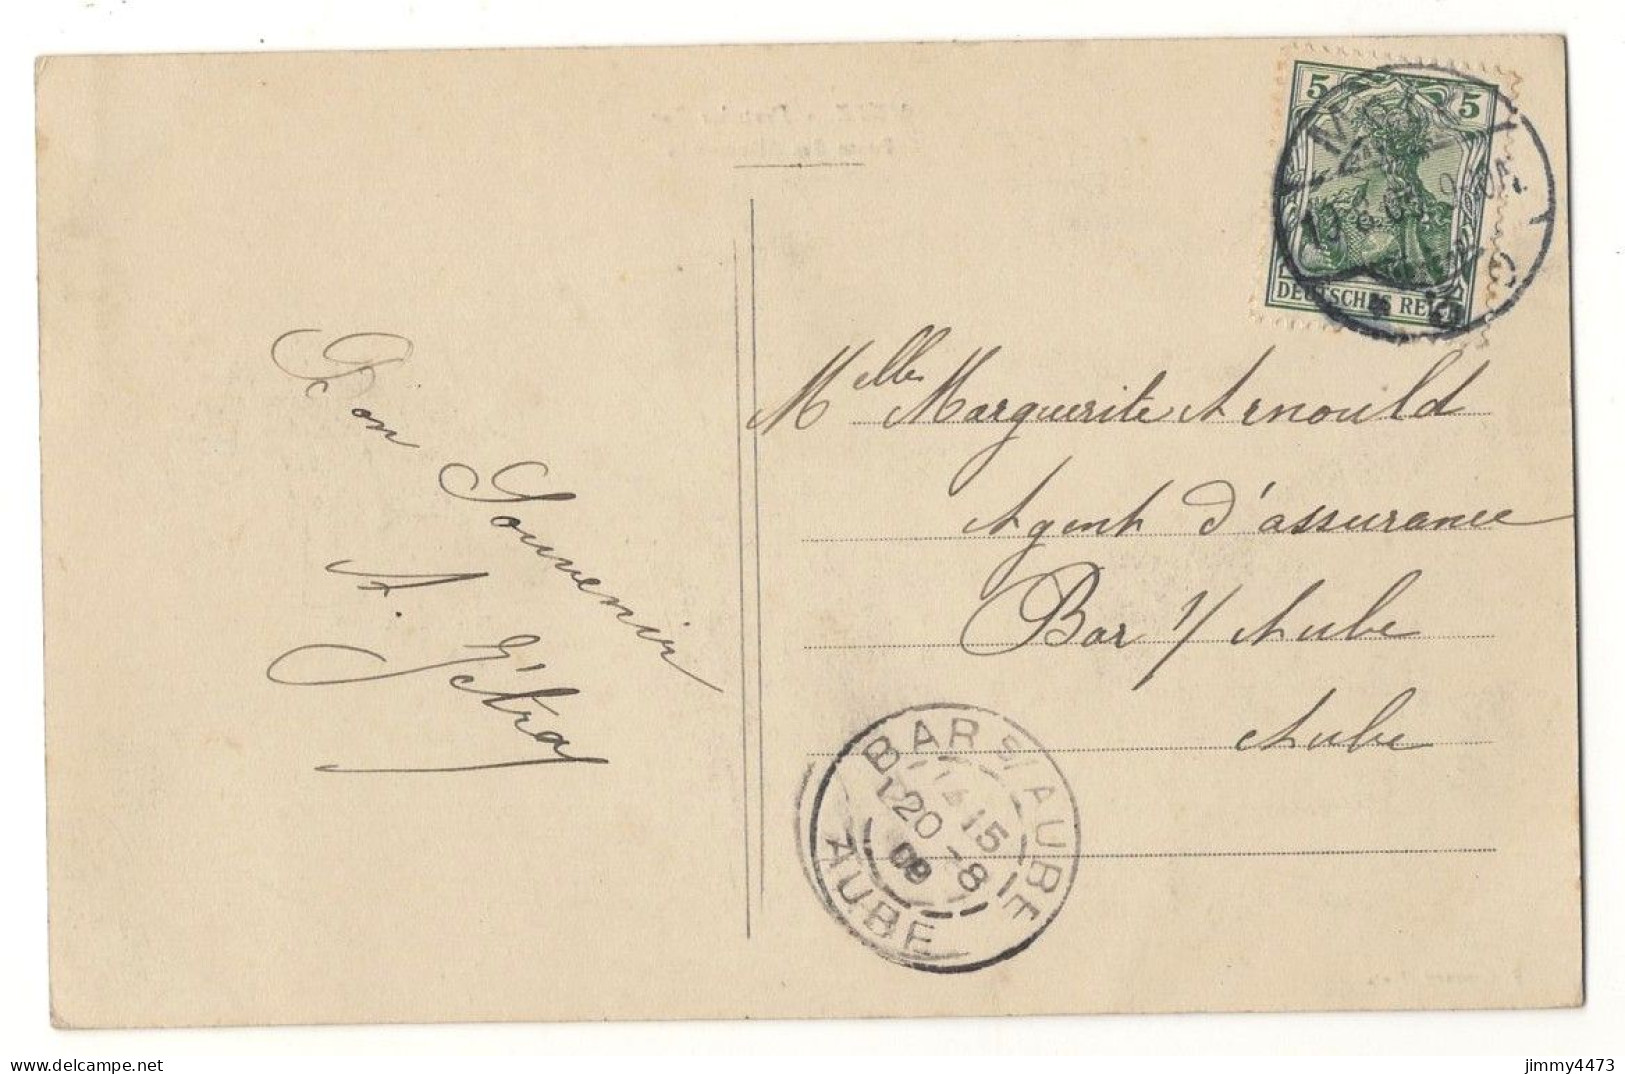 5 5
DEUTSCHES REICH
Bon Souvenir
A. Gétra
Melle Marguerite Arnould
Agent d'assurance
Bar s/ Aube
Aube
BAR S/ AUBE
15
20 -8
09
AUBE
www.delcampe.net
jimmy4473